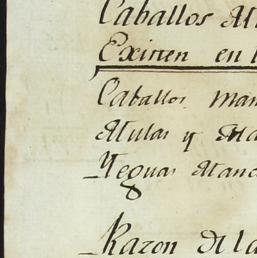 Caballos
Existen en l
Caballos Man
Mulas y Ma
Yeguas Mans
Razon de la